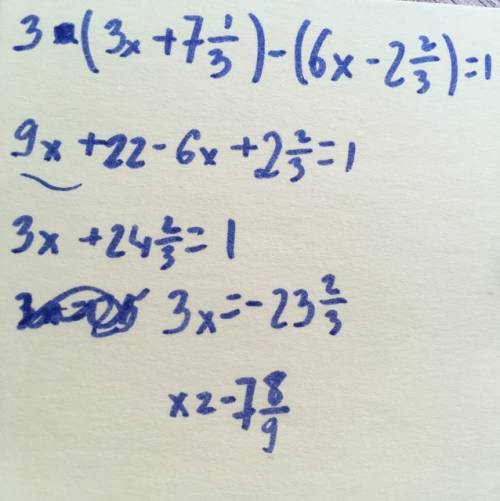 3 · (3x + 7 1/3) - (6x - 2 2/3) = 1
9x + 22 - 6x + 2 2/3 = 1
3x + 24 2/3 = 1
3x = -23 2/3
x = -7 8/9